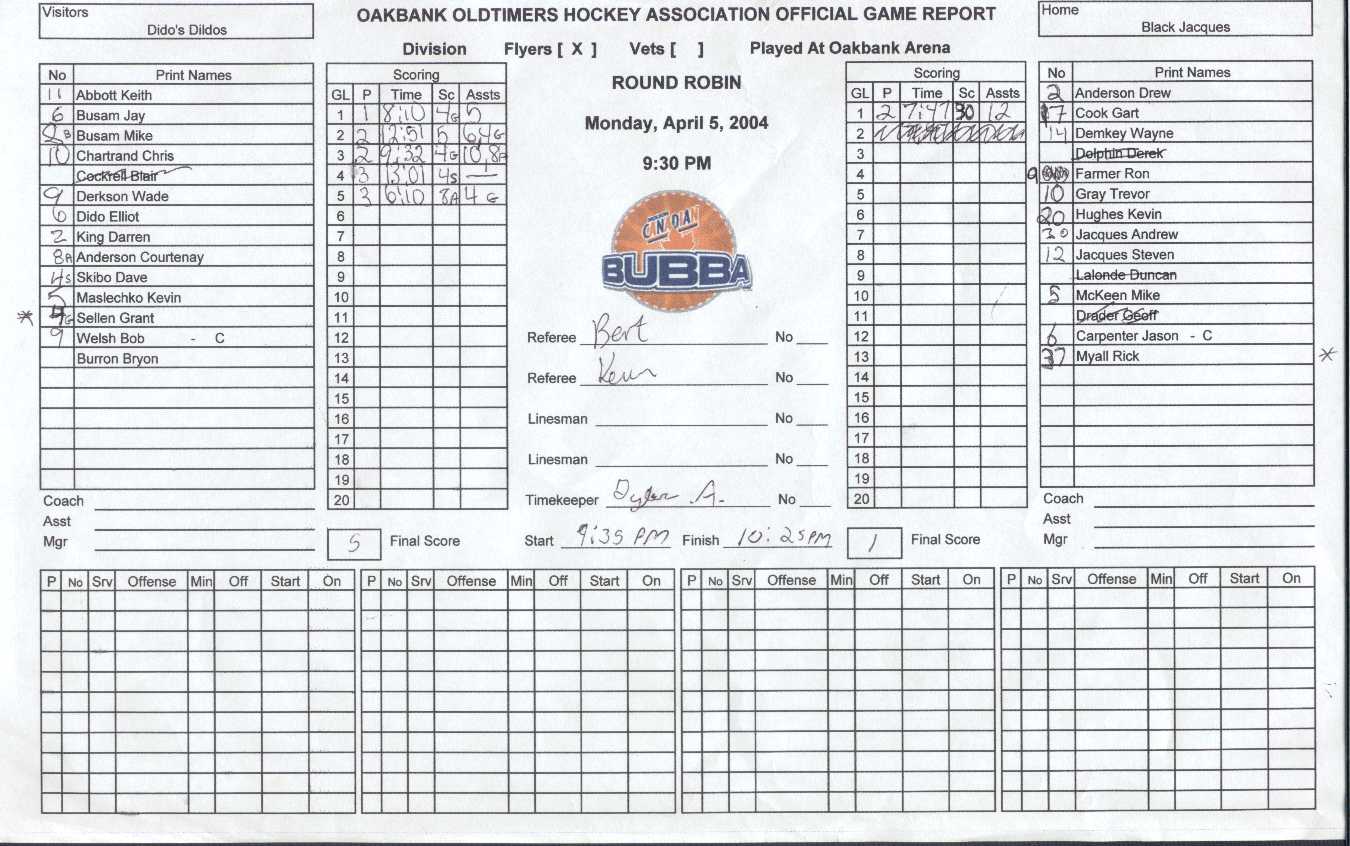 Visitors
Dido's Dildos
OAKBANK OLDTIMERS HOCKEY ASSOCIATION OFFICIAL GAME REPORT
Home
Black Jacques
Division Flyers [ X ] Vets [ ] Played At Oakbank Arena
ROUND ROBIN
Monday, April 5, 2004
9:30 PM
CANADA
BUBBA
No Print Names
11 Abbott Keith
6 Busam Jay
8B Busam Mike
10 Chartrand Chris
Cockrell Blair
9 Derkson Wade
6 Dido Elliot
2 King Darren
8A Anderson Courtenay
4s Skibo Dave
5 Maslechko Kevin
* G Sellen Grant
9 Welsh Bob - C
Burron Bryon
Coach
Asst
Mgr
Scoring
GL P Time Sc Assts
1 1 8:10 4G 5
2 2 12:51 5 6,4G
3 2 9:32 4G 10,8A
4 3 13:01 4s —
5 3 6:10 8A 4G
6
7
8
9
10
11
12
13
14
15
16
17
18
19
20
5 Final Score
Referee Bert No
Referee Kevin No
Linesman No
Linesman No
Timekeeper Dylan A. No
Start 9:35 PM Finish 10:25PM
Scoring
GL P Time Sc Assts
1 2 7:47 30 12
2
3
4
5
6
7
8
9
10
11
12
13
14
15
16
17
18
19
20
1 Final Score
No Print Names
2 Anderson Drew
17 Cook Gart
14 Demkey Wayne
Dolphin Derek
9 Farmer Ron
10 Gray Trevor
20 Hughes Kevin
30 Jacques Andrew
12 Jacques Steven
Lalonde Duncan
5 McKeen Mike
Drader Geoff
6 Carpenter Jason - C
37 Myall Rick *
Coach
Asst
Mgr
P No Srv Offense Min Off Start On P No Srv Offense Min Off Start On P No Srv Offense Min Off Start On P No Srv Offense Min Off Start On